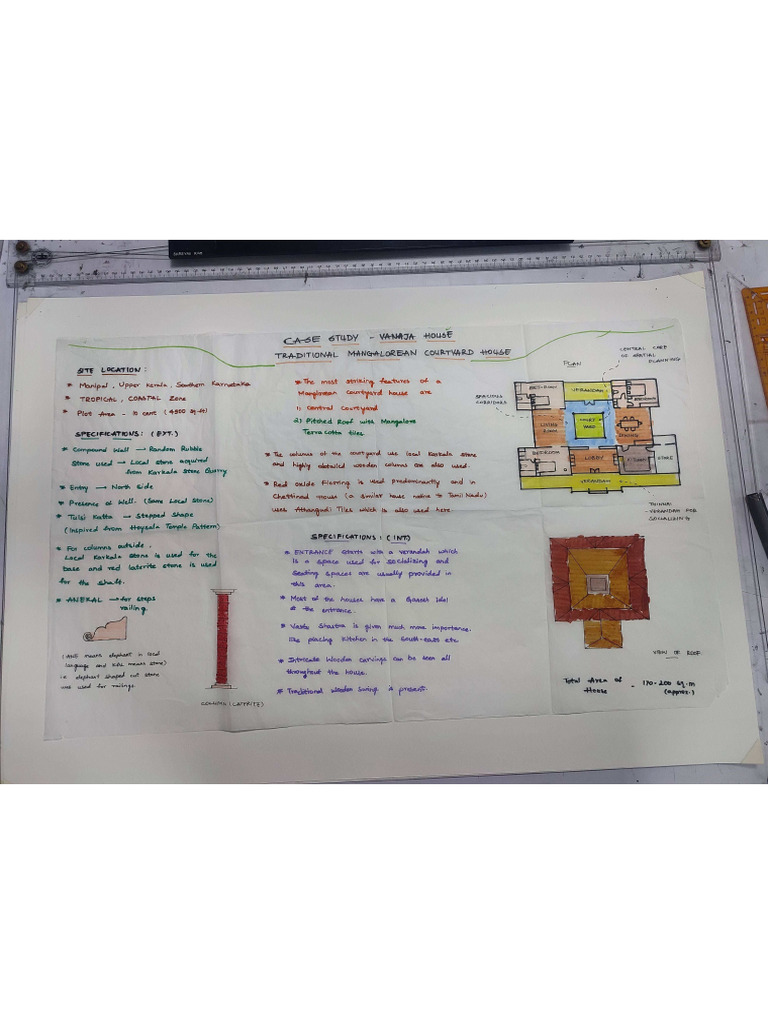 CASE STUDY - VANAJA HOUSE
TRADITIONAL MANGALOREAN COURTYARD HOUSE
SITE LOCATION :
* Manipal, Upper Kerala, Southern Karnataka
* TROPICAL, COASTAL Zone
* Plot Area - 10 cent (4500 sq.ft)
SPECIFICATIONS : (EXT.)
* Compound Wall → Random Rubble
Stone used → Local stone acquired
from Karkala Stone Quarry
* Entry → North Side
* Presence of Well. (Same Local Stone)
* Tulsi Katta → Stepped Shape
(Inspired from Hoysala Temple Pattern)
* For columns outside,
Local Karkala stone is used for the
base and red laterite stone is used
for the shaft.
* ANEKAL → for steps
railing
(ANE means elephant in local
language and KAL means stone)
i.e elephant shaped cut stone
are used for railings.
COLUMN (LATRITE)
* The most striking features of a
Manglorean courtyard house are
1) Central Courtyard
2) Pitched Roof with Mangalore
Terracotta tiles
* The columns of the courtyard use local Karkala stone
and highly detailed wooden columns are also used.
* Red oxide Flooring is used predominantly and in
Chettinad House (a similar house native to Tamil Nadu)
uses Athangudi Tiles which is also used here.
SPECIFICATIONS : (INT)
* ENTRANCE starts with a verandah which
is a space used for socializing and
seating spaces are usually provided in
this area.
* Most of the houses have a Ganesh Idol
at the entrance.
* Vastu Shastra is given much more importance.
like placing kitchen in the South-east etc
* Intricate Wooden carvings can be seen all
throughout the house.
* Traditional Wooden Swing is present.
PLAN
CENTRAL CORE
OF SPATIAL
PLANNING
SPACIOUS
CORRIDORS
BEDROOM
VERANDAH
LIVING
ROOM
COURT
YARD
DINING
BEDROOM
LOBBY
KITCHEN
STORE
VERANDAH
THINNAI
- VERANDAH FOR
SOCIALIZING
VIEW OF ROOF.
Total Area of
House - 170-200 sq.m
(approx.)